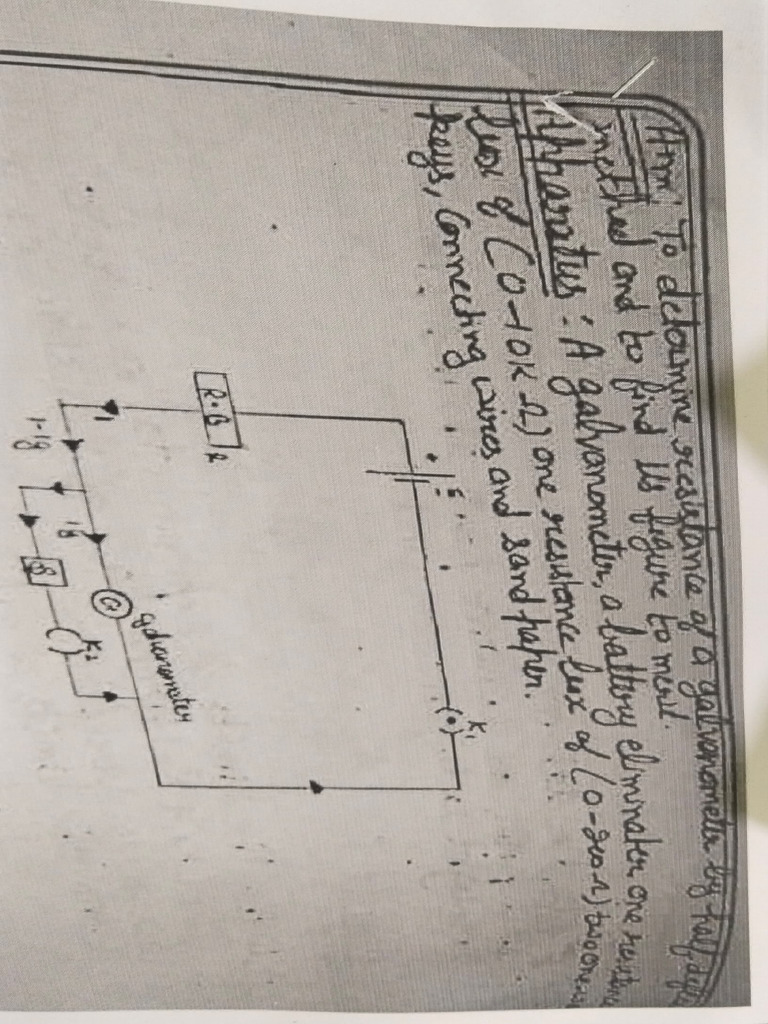 Aim: To determine resistance of a galvanometer by half
method and to find its figure to merit.
Apparatus: A galvanometer, a battery eliminater one
box of (0-10K Ω) one resistance box of (0-200 Ω) two one
keys, Connecting wires and sand paper.
E
K1
R.B
R
I
I-Ig
Ig
G
galvanometer
S
K2